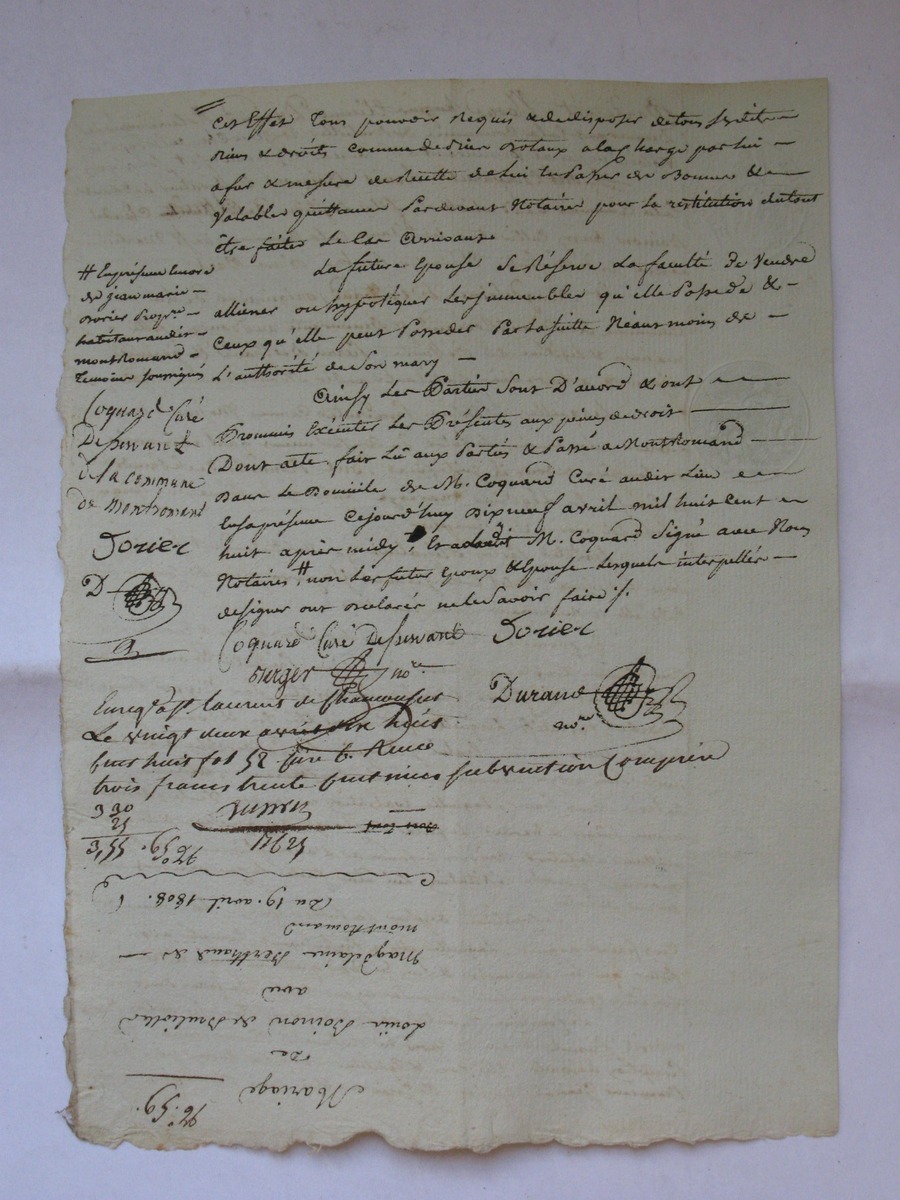 Cet Effet Tous pouvoir Requis & de disposer de tous ses titres
biens & droits comme de siens Dotaux a la charge par lui
a fur & mesure de Recette de lui en Passer de Bonnes &
Valables quittances Pardevant Notaires pour la restitution du tout
être faites Le Cas Arrivant
La future Epouse Se Réserve La faculté de Vendre
alliener ou hypotéquer Les jmmeubles qu'elle Possede &
Ceux qu'elle peut Posseder Par la suitte Néanmoins de
L'authorité de Son mary
Ainsy Les Parties Sont D'acord & ont
Promis Exécuter Les Présentes aux peines de droit
Dont acte fait Lû aux Parties & Passé a Montromand
Dans Le Domicile de M. Coquard Curé audit Lieu
En sa présence Cejourd'huy Dix neuf avril mil huit Cent
huit après midy, Et a ledit M. Coquard Signé avec Nous
Notaires # non Les futur Epoux & Epouse Lesquels interpellés
de signer ont Déclarés ne le Savoir faire ./.
# En présence encore
de jean marie
Dorier Propre.
habitant audit
montRomand
Temoins soussignés
Coquard Curé
Desservant
de la commune
de Montromant
Dorier
D
Coquard Curé Desservant Dorier
Durand
nore
nore
Enregé a St. laurent de Chamousset
Le vingt deux avril dix huit
cent huit fol 52
trois francs trente centimes subvention Comprise
3 30
25
3,55
No. 59.
Du 19. avril 1808.
montRomand
Magdelaine Berthaud de
avec
Louis Boinon de Brulioles
De
Mariage
No. 59.